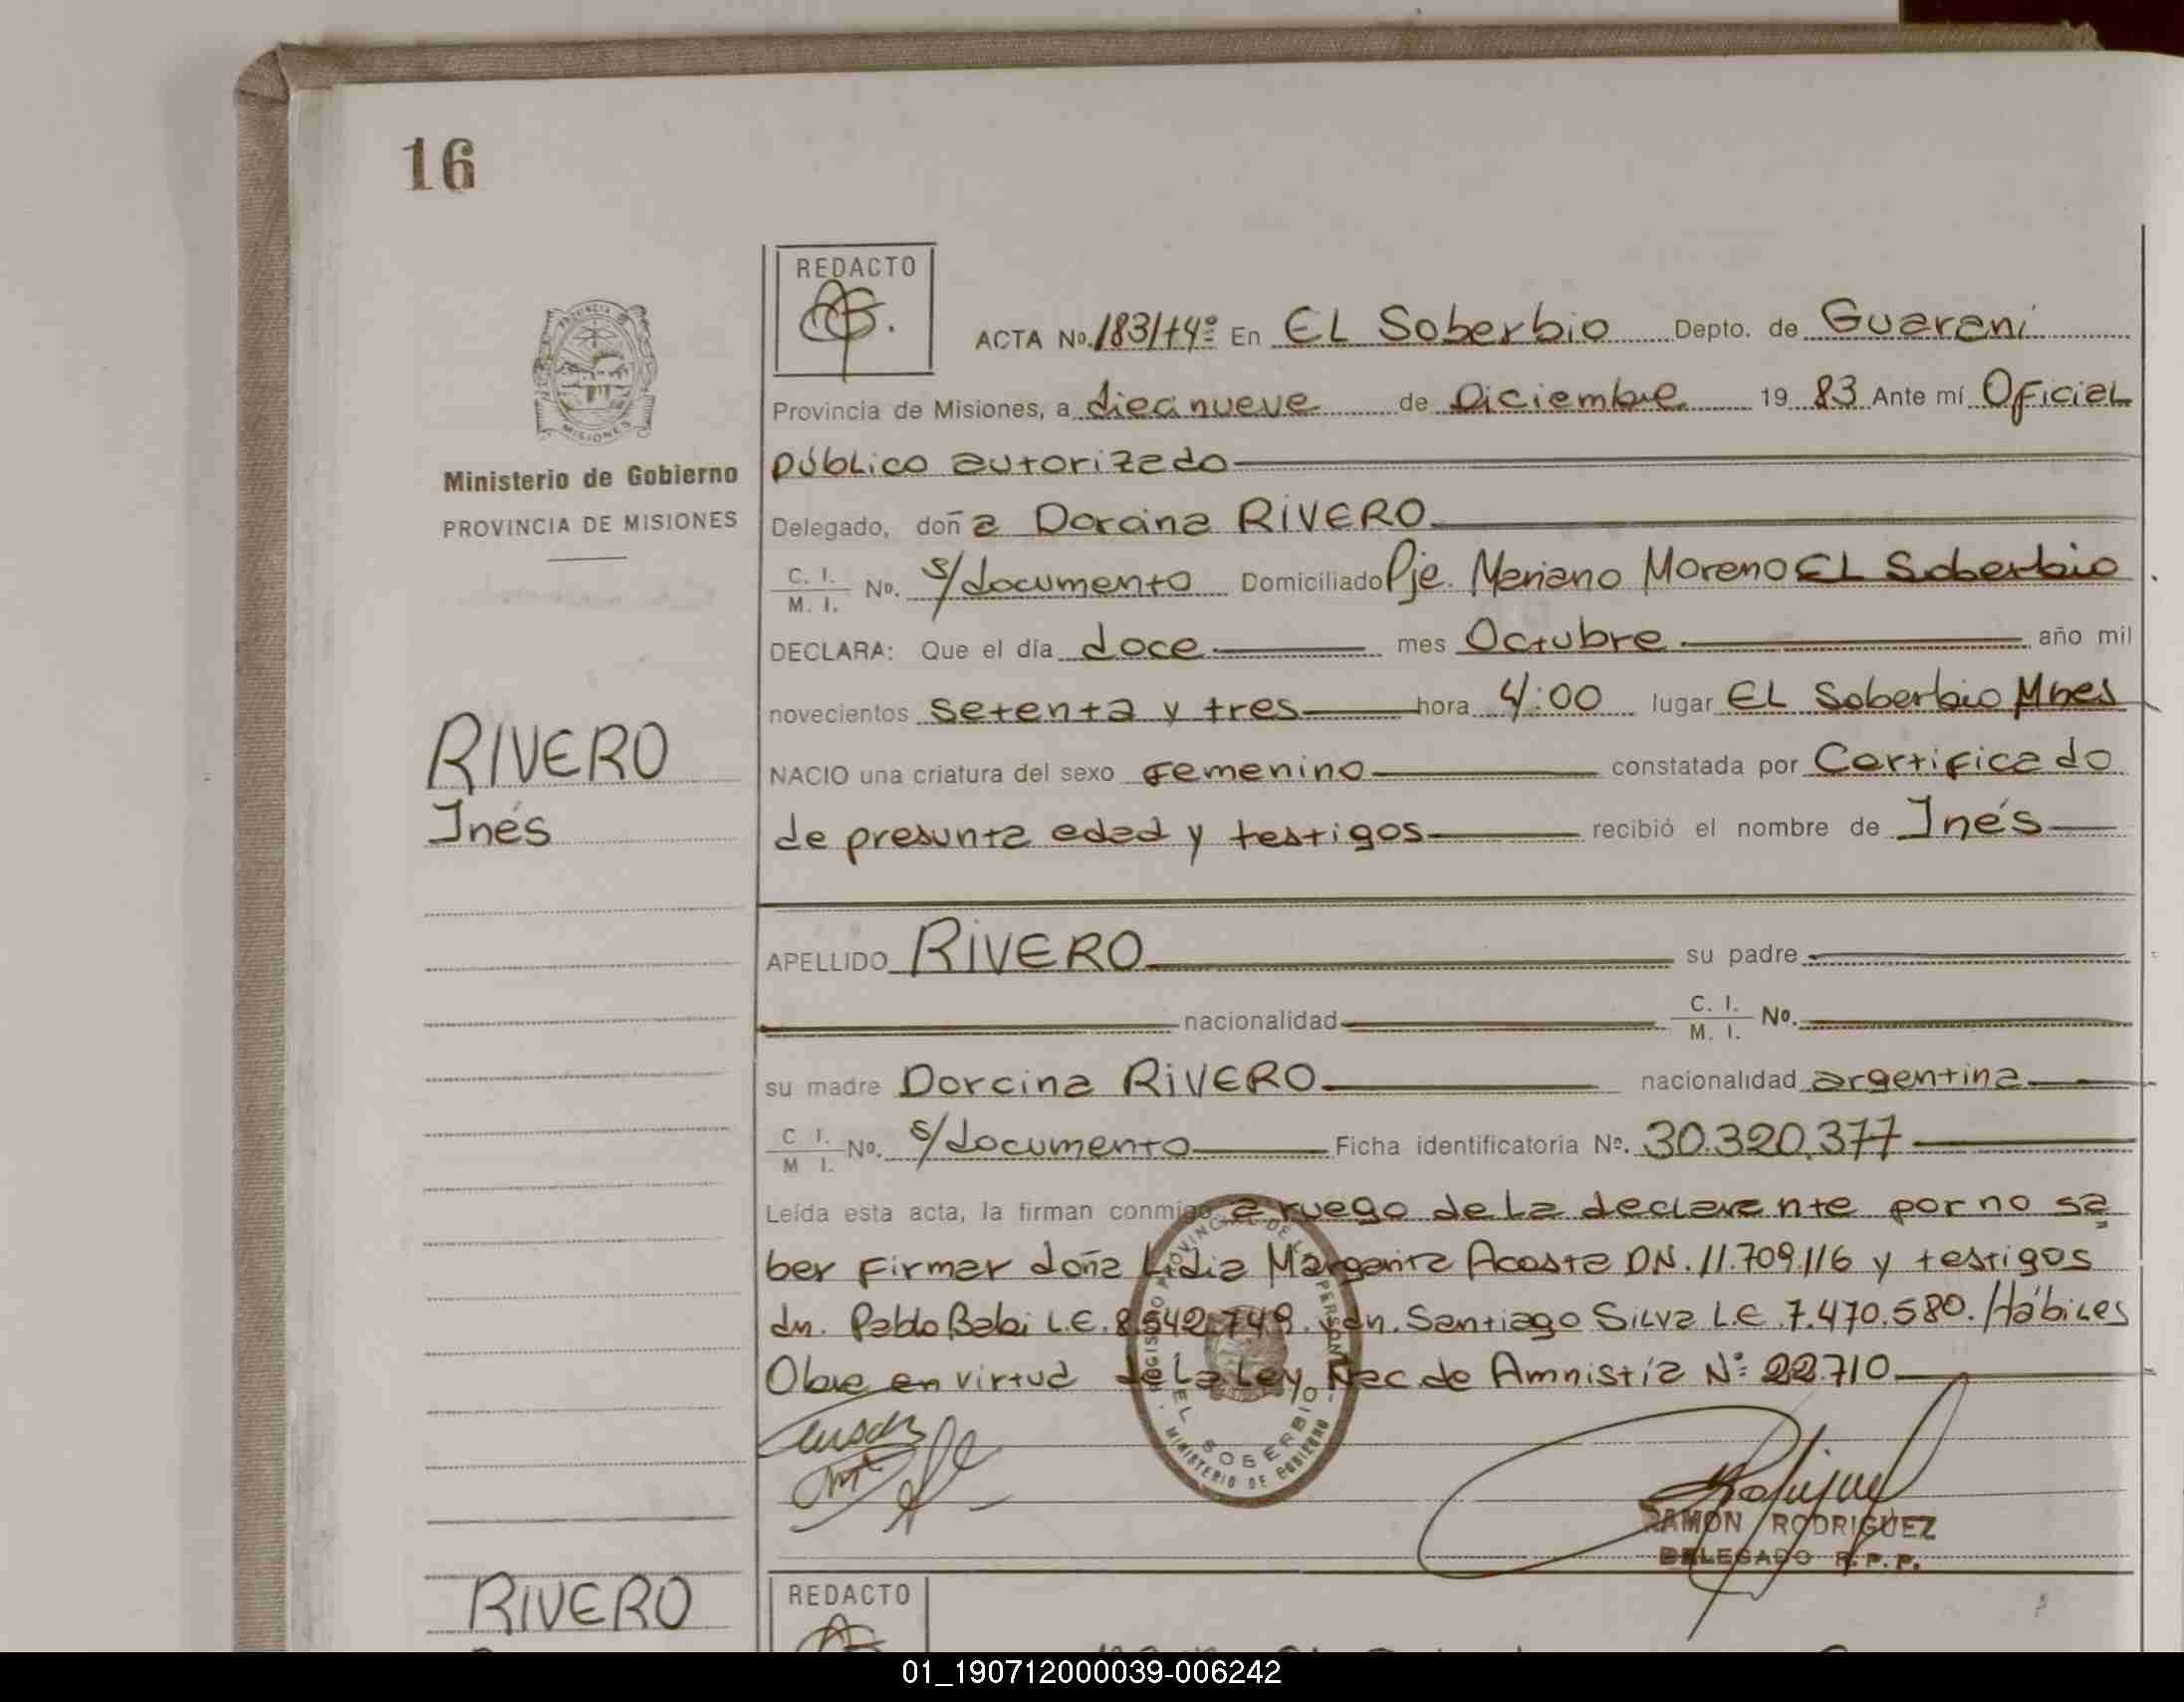 16
REDACTO
ACTA No. 183/T4º En EL Soberbio Depto. de Guaraní
Provincia de Misiones, a diecinueve de Diciembre 19 83 Ante mí Oficial
público autorizado
Delegado, doña Dorcina RIVERO
C. I. / M. I. No. s/documento Domiciliado Pje. Mariano Moreno EL Soberbio
DECLARA: Que el día doce mes Octubre año mil
novecientos setenta y tres hora 4:00 lugar EL Soberbio Mnes
NACIO una criatura del sexo femenino constatada por Certificado
de presunta edad y testigos recibió el nombre de Inés
APELLIDO RIVERO su padre
nacionalidad C. I. / M. I. No.
su madre Dorcina RIVERO nacionalidad argentina
C. I. / M. I. No. s/documento Ficha identificatoria Nº. 30.320.377
Leída esta acta, la firman conmigo a ruego de la declarante por no sa
ber firmar doña Lidia Margarita Acosta DN. 11.709.116 y testigos
dn. Pablo Babi L.E. 8.542.749. y dn. Santiago Silva L.E. 7.470.580. Hábiles
Obre en virtud de la Ley Nac de Amnistía Nº 22.710
REGISTRO PROVINCIAL DE LAS PERSONAS
EL SOBERBIO
MINISTERIO DE GOBIERNO
RAMON RODRIGUEZ
DELEGADO R.P.P.
PROVINCIA DE
MISIONES
Ministerio de Gobierno
PROVINCIA DE MISIONES
RIVERO
Inés
RIVERO
REDACTO
01_190712000039-006242